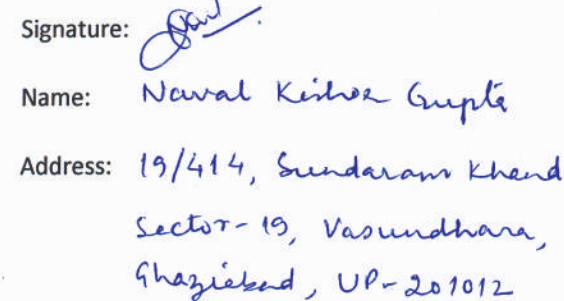 Signature:
Name: Naval Kishor Gupta
Address: 19/414, Sundaram Khand
Sector-19, Vasundhara,
Ghaziabad, UP-201012